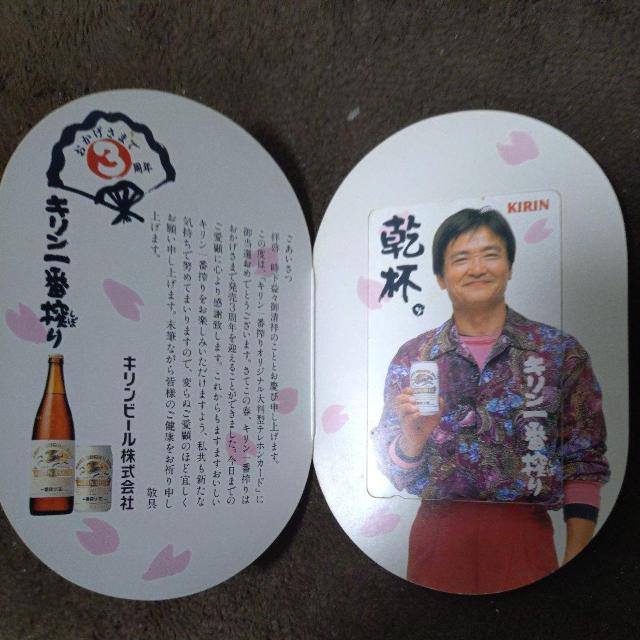 おかげさまで
3周年
キリン一番搾り
しぼ
キリンビール株式会社
ごあいさつ
拝啓 時下益々御清祥のこととお慶び申し上げます。
この度は、「キリン一番搾りオリジナル大判型テレホカード」に
御当選おめでとうございます。さてこの春、キリン一番搾りは
おかげさまで発売3周年を迎えることができました。今日までの
ご愛顧に心より感謝致します。これからもますますおいしい
キリン一番搾りをお楽しみいただけますよう、私共も新たな
気持ちで努めてまいりますので、変らぬご愛顧のほど宜しく
お願い申し上げます。末筆ながら皆様のご健康をお祈り申し
上げます。
敬具
KIRIN
乾杯。
キリン一番搾り